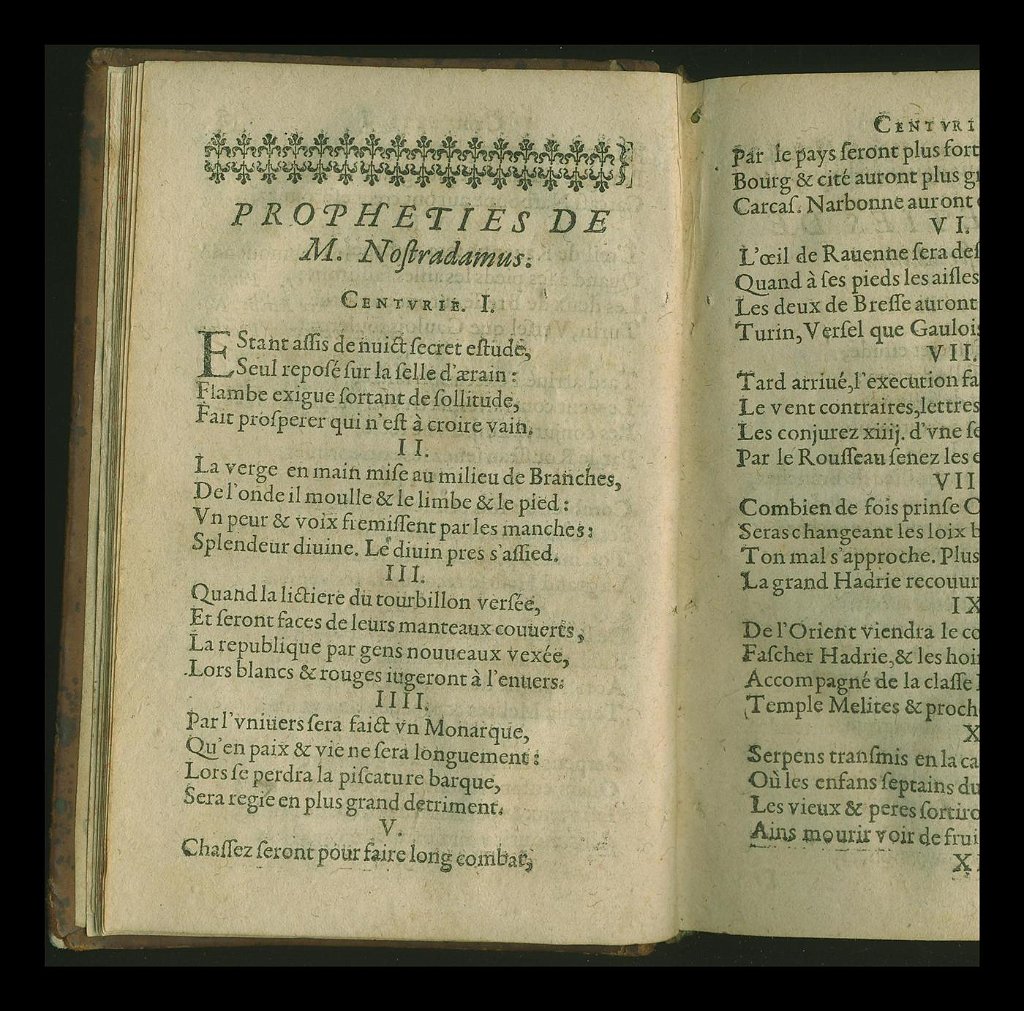 PROPHETIES DE
M. Noſtradamus.
CENTVRIE. I.
EStant aſſis de nuict ſecret eſtude,
Seul repoſé ſur la ſelle d'ærain :
Flambe exigue ſortant de ſollitude,
Fait proſperer qui n'eſt à croire vain.
II.
La verge en main miſe au milieu de Branches,
De l'onde il moulle & le limbe & le pied :
Vn peur & voix fremiſſent par les manches :
Splendeur diuine. Le diuin pres s'aſſied.
III.
Quand la lictiere du tourbillon verſée,
Et ſeront faces de leurs manteaux couuerts,
La republique par gens nouueaux vexée,
Lors blancs & rouges iugeront à l'enuers.
IIII.
Par l'vniuers ſera faict vn Monarque,
Qu'en paix & vie ne ſera longuement :
Lors ſe perdra la piſcature barque,
Sera regie en plus grand detriment.
V.
Chaſſez ſeront pour faire long combat,
CENTVRI
Par le pays ſeront plus fort
Bourg & cité auront plus g
Carcaſ. Narbonne auront
VI.
L'œil de Rauenne ſera deſ
Quand à ſes pieds les aiſles
Les deux de Breſſe auront
Turin, Verſel que Gauloi
VII.
Tard arriué, l'execution fa
Le vent contraires, lettres
Les conjurez xiiij. d'vne ſe
Par le Rouſſeau ſenez les e
VII
Combien de fois prinſe C
Seras changeant les loix b
Ton mal s'approche. Plus
La grand Hadrie recouur
IX
De l'Orient viendra le co
Faſcher Hadrie, & les hoi
Accompagné de la claſſe
Temple Melites & proch
X
Serpens tranſmis en la ca
Où les enfans ſeptains du
Les vieux & peres ſortiro
Ains mourir voir de frui
XI